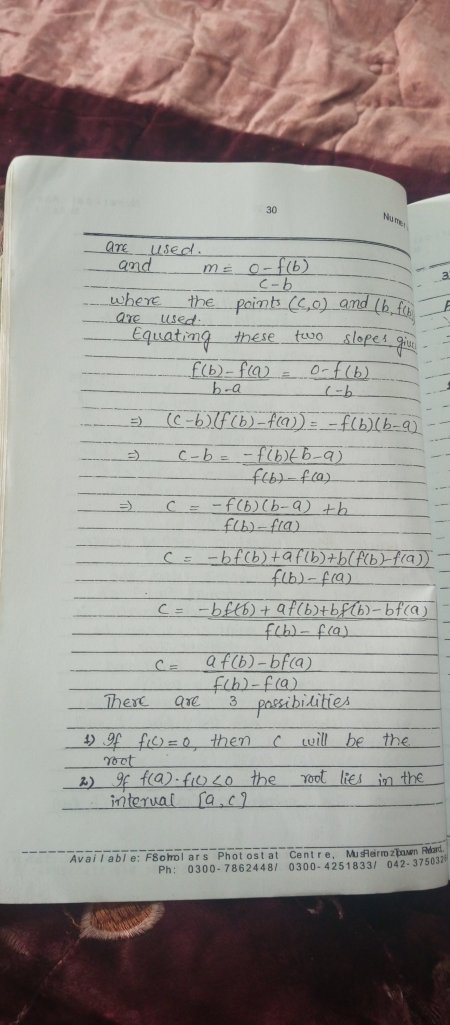 30
Nume
are used.
and m = 0-f(b) / c-b
where the points (c,0) and (b, f(b)
are used.
Equating these two slopes give
f(b)-f(a) / b-a = 0-f(b) / c-b
=> (c-b)(f(b)-f(a)) = -f(b)(b-a)
=> c-b = -f(b)(b-a) / f(b)-f(a)
=> c = -f(b)(b-a) / f(b)-f(a) + b
c = -bf(b)+af(b)+b(f(b)-f(a)) / f(b)-f(a)
c = -bf(b) + af(b)+bf(b)-bf(a) / f(b)-f(a)
c = af(b)-bf(a) / f(b)-f(a)
There are 3 possibilities
1) If f(c)=0, then c will be the
root
2) If f(a).f(c)<0 the root lies in the
interval [a,c]
Available: Scholars Photostat Centre,
Ph: 0300-7862448/ 0300-4251833/ 042-375032